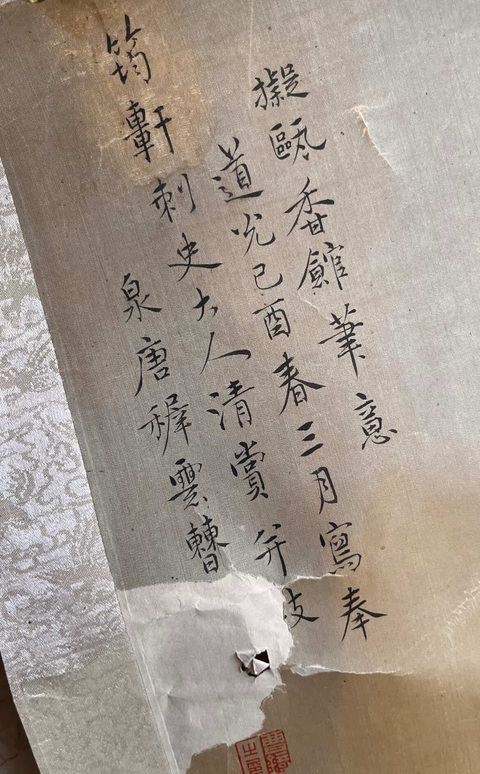 擬甌香館筆意
道光己酉春三月寫奉
筠軒刺史大人清賞并
泉唐穉雲